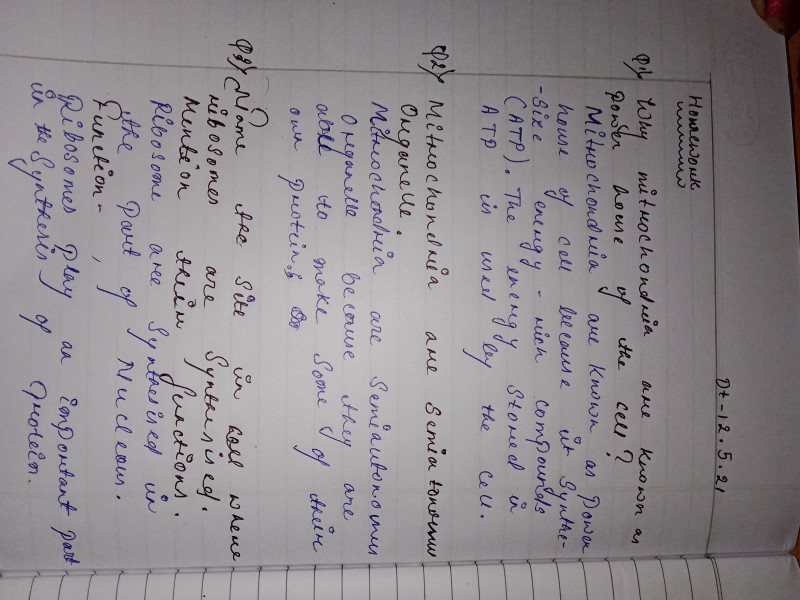 Dt - 12.5.21
Homework
Q1) Why mitrochondria are known as
power house of the cell?
Mitrochondria are known as power
house of cell because it Synthe-
-Size energy - rich compounds
(ATP). The energy Stored in
ATP is used by the cell.
Q2) Mitrochondria are Semiatonomus
Organelle.
Mitrochondria are Semiautonomus
Organelle because they are
able to make Some of their
own proteins
Q3) Name the Site in cell where
ribosomes are Synthesised.
Mention their functions.
Ribosome are Synthesised in
the part of Nucleous.
Function-
Ribosomes play an important part
in the Synthesis of protein.